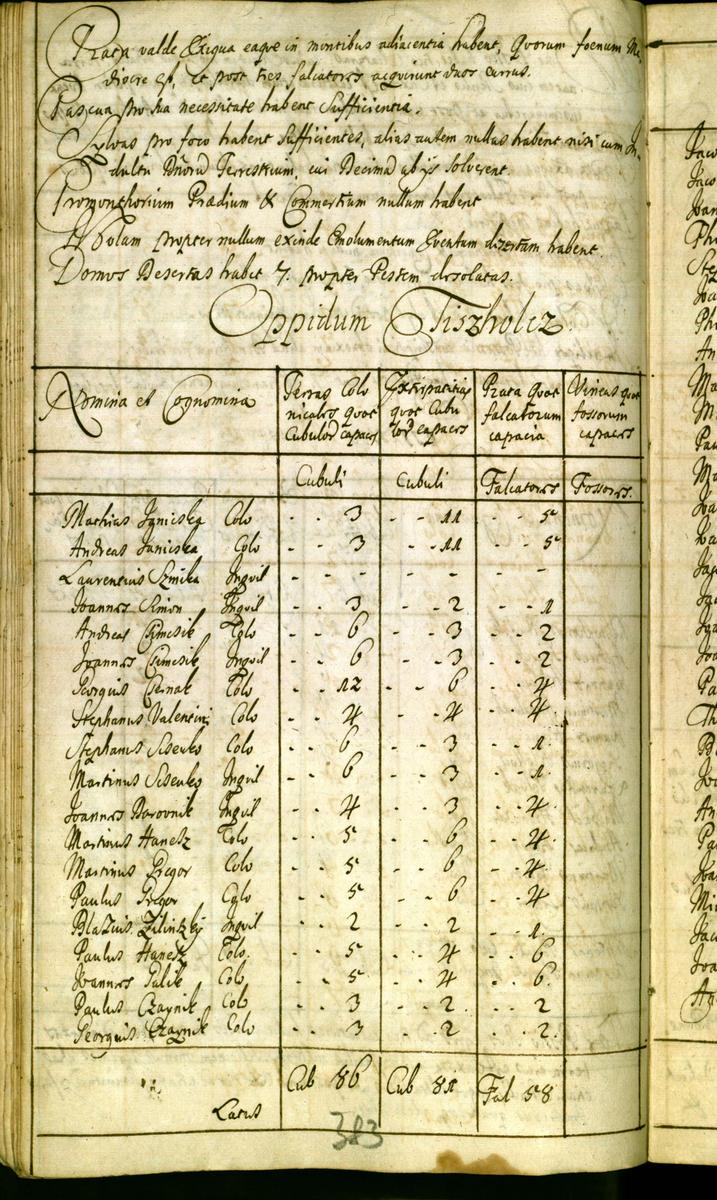 Prata valde Exigua eaque in montibus adiacentia habent, Quorum foenum Me-
diocre est, et post tres falcatores acquirunt duos currus.
Pascua pro sua necessitate habent Sufficientia.
Sylvas pro foco habent Sufficientes, alias autem nullas habent nisi cum In-
dultu Dñorū Terrestrium, cui Decimā ab ijs solverent.
Promonthorium Praedium & Commertium nullum habent
Molam propter nullum exinde Emolumentum Eventum desertam habent.
Domos Desertas habet 7. propter Pestem desolatas.
Oppidum Tiszholcz
Nomina et Cognomina | Terras Colo nicales quot Cubulorū capaces | Extirpatitias quot Cubu lorū capaces | Prata quot falcatorum capacia | Vineas quot fossorum capaces
Cubuli | Cubuli | Falcatores | Fossores.
Mathias Janiska Colo - - 3 - - 11 - - 5
Andreas Janiska Colo - - 3 - - 11 - - 5
Laurentius Sznika Inquil - - - - - - -
Joannes Simon Inquil - - 3 - - 2 - - 1
Andreas Czimcsik Colo - - 6 - - 3 - - 2
Joannes Czimcsik Inquil - - 6 - - 3 - - 2
Georgius Csernak Colo - - 12 - - 6 - - 4
Stephanus Valentini Colo - - 4 - - 4 - - 4
Stephanus Sseuko Colo - - 6 - - 3 - - 1.
Martinus Sseuko Inquil - - 6 - - 3 - - 1.
Joannes Borovnik Inquil - - 4 - - 3 - - 4
Martinus Hanesz Colo - - 5 - - 6 - - 4.
Martinus Gregor Colo - - 5 - - 6 - - 4.
Paulus Gregor Colo - - 5 - - 6 - - 4
Blasius Zilinszky Inquil - - 2 - - 2 - - 1.
Paulus Hanesz Colo. - - 5 - - 4 - - 6
Joannes Pulik Colo - - 5 - - 4 - - 6.
Paulus Czaynik Colo - - 3 - - 2 - - 2
Georgius Czaynik Colo - - 3 - - 2 - - 2.
Latus Cub 86 Cub 81 Fal 58
383